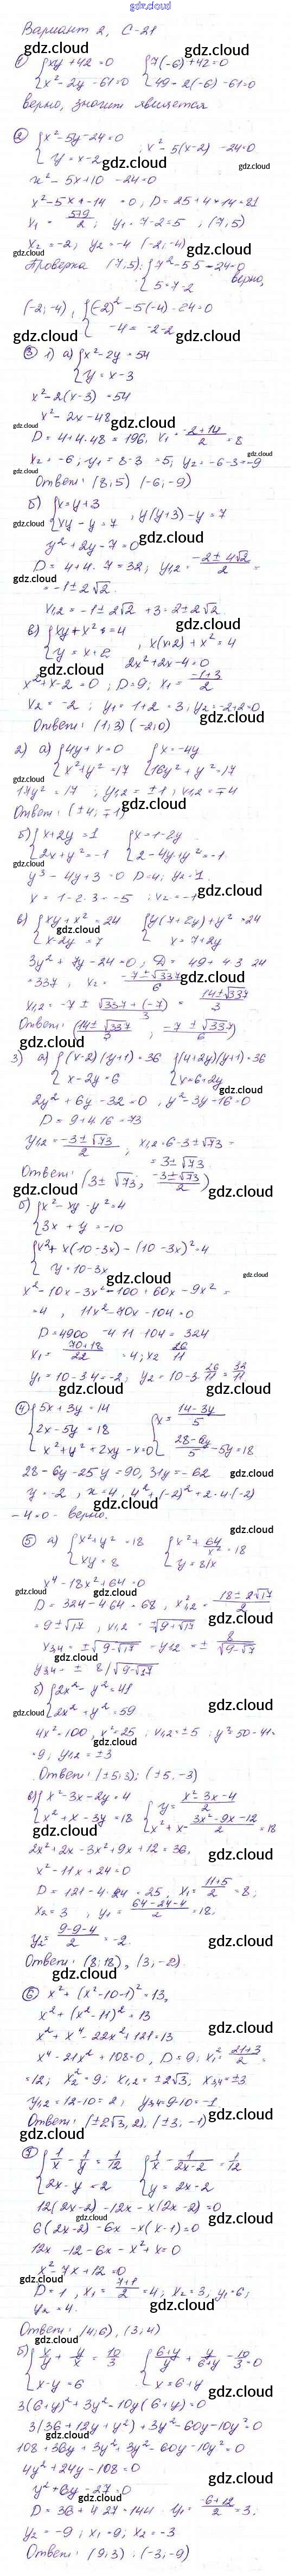 gdz.cloud
Вариант 2, С-21
① { xy + 42 = 0   { 7(-6) + 42 = 0
x² - 2y - 61 = 0   49 + 2(-6) - 61 = 0
верно, значит является
② { x² - 5y - 24 = 0
y = x - 2   ; x² - 5(x-2) - 24 = 0
x² - 5x + 10 - 24 = 0
x² - 5x - 14 = 0, D = 25 + 4·14 = 81
y₁ = 7 - 2 = 5 ; (7; 5)
x₂ = -2; y₂ = -4 (-2; -4)
Проверка (7; 5): { 7² - 5·5 - 24 = 0
5 = 7 - 2   верно,
(-2; -4), { (-2)² - 5(-4) - 24 = 0
-4 = -2 - 2
③ 1) а) { x² - 2y = 54
y = x - 3
x² - 2(x-3) = 54
x² - 2x - 48
D = 4 + 4·48 = 196. x₁ = (-2+14)/2 = 8
x₂ = -6; y₁ = 8 - 3 = 5; y₂ = -6 - 3 = -9
Ответ: (8; 5) (-6; -9)
б) { x = y + 3
xy - y = 7   , y(y+3) - y = 7
y² + 2y - 7 = 0
D = 4 + 4·7 = 32; y₁,₂ = (-2 ± 4√2)/2 =
= -1 ± 2√2.
x₁,₂ = -1 ± 2√2 + 3 = 2 ± 2√2
в) { xy + x² = 4
y = x + 2   , x(x+2) + x² = 4
2x² + 2x - 4 = 0
x² + x - 2 = 0 ; D = 9; x₁ = (-1+3)/2
x₂ = -2 ; y₁ = 1 + 2 = 3; y₂ = -2 + 2 = 0
Ответ: (1; 3) (-2; 0)
2) а) { 4y + x = 0   { x = -4y
x² + y² = 17   16y² + y² = 17
17y² = 17 ; y₁,₂ = ±1 ; x₁,₂ = ∓4
Ответ: (±4; ∓1)
б) { x + 2y = 1   { x = 1 - 2y
2x + y² = -1   2 - 4y + y² = -1
y² - 4y + 3 = 0 D = 4; y₂ = 1
x = 1 - 2·3 = -5 ; x₂ = -1
в) { xy + x² = 24
x - 2y = 7   x = 7 + 2y
3y² + 7y - 24 = 0, D = 49 + 4·3·24
= 337 , x₂ = (-7 ± √337)/6
Ответ:
3) а) { (x-2)(y+1) = 36   { (4+2y)(y+1) = 36
x - 2y = 6   x = 6 + 2y
2y² + 6y - 32 = 0 , y² - 3y - 16 = 0
D = 9 + 4·16 = 73
y₁,₂ = (-3 ± √73)/2 ; x₁,₂ = 6 - 3 ± √73 =
= 3 ± √73
Ответ: (3 ± √73; (-3 ± √73)/2)
б) { x² - xy - y² = 4
3x + y = -10
{ x² + x(10-3x) - (10-3x)² = 4
y = 10 - 3x
x² - 10x - 3x² - 100 + 60x - 9x² =
= 4 , 11x² - 70x - 104 = 0
D = 4900 - 4·11·104 = 324
x₁ = (70+18)/22 = 4; x₂ 26/11
y₁ = 10 - 3·4 = -2; y₂ = 10 - 3·26/11 = 32/11
④ { 5x + 3y = 14   { x = (14-3y)/5
2x - 5y = 18
x² + y² + 2xy - x = 0   (28-6y)/5 - 5y = 18
28 - 6y - 25y = 90, 31y = -62
y = -2 , x = 4 , 4² + (-2)² + 2·4·(-2)
- 4 = 0 - верно.
⑤ а) { x² + y² = 18   { x² + 64/x² = 18
xy = 8   y = 8/x
x⁴ - 18x² + 64 = 0
D = 324 - 4·64 = 68 , x²₁,₂ = (18 ± 2√17)/2
= 9 ± √17 , x₁,₂ = √(9+√17)
x₃,₄ = ±√(9-√17) y₁,₂ = ± 8/√(9-√17)
y₃,₄ = ± 8/√(9-√17)
б) { 2x² - y² = 41
2x² + y² = 59
4x² = 100 , x² = 25 ; x₁,₂ = ±5 ; y² = 50 - 41
= 9; y₁,₂ = ±3
Ответ: (±5; 3); (±5, -3)
в) { x² - 3x - 2y = 4   { y = (x²-3x-4)/2
x² + x - 3y = 18   x² + x - (3x²-9x-12)/2 = 18
2x² + 2x - 3x² + 9x + 12 = 36.
x² - 11x + 24 = 0
D = 121 - 4·24 = 25, x₁ = (11+5)/2 = 8;
x₂ = 3 ; y₁ = (64-24-4)/2 = 18.
y₂ = (9-9-4)/2 = -2.
Ответ: (8; 18), (3; -2)
⑥ x² + (x²-10-1)² = 13,
x² + (x²-11)² = 13
x² + x⁴ - 22x² + 121 = 13
x⁴ - 21x² + 108 = 0, D = 9; x₁² = (21+3)/2 =
= 12; x₂² = 9; x₁,₂ = ±2√3, x₃,₄ = ±3
y₁,₂ = 12 - 10 = 2; y₃,₄ = 9 - 10 = -1
Ответ: (±2√3, 2), (±3, -1)
⑦ { 1/x - 1/y = 1/12   { 1/x - 1/(2x-2) = 1/12
2x - y = 2   y = 2x - 2
12(2x-2) - 12x - x(2x-2) = 0
6(2x-2) - 6x - x(x-1) = 0
12x - 12 - 6x - x² + x = 0
x² - 7x + 12 = 0
D = 1 , x₁ = (7+1)/2 = 4; x₂ = 3, y₁ = 6;
y₂ = 4.
Ответ: (4; 6), (3; 4)
б) { x/y + y/x = 10/3   { (6+y)/y + y/(6+y) - 10/3 = 0
x - y = 6   x = 6 + y
3(6+y)² + 3y² - 10y(6+y) = 0
3(36 + 12y + y²) + 3y² - 60y - 10y² = 0
108 + 36y + 3y² + 3y² - 60y - 10y² = 0
4y² + 24y - 108 = 0
y² + 6y - 27 = 0
D = 36 + 4·27 = 144 y₁ = (-6+12)/2 = 3;
y₂ = -9 ; x₁ = 9; x₂ = -3
Ответ: (9; 3) ; (-3; -9)